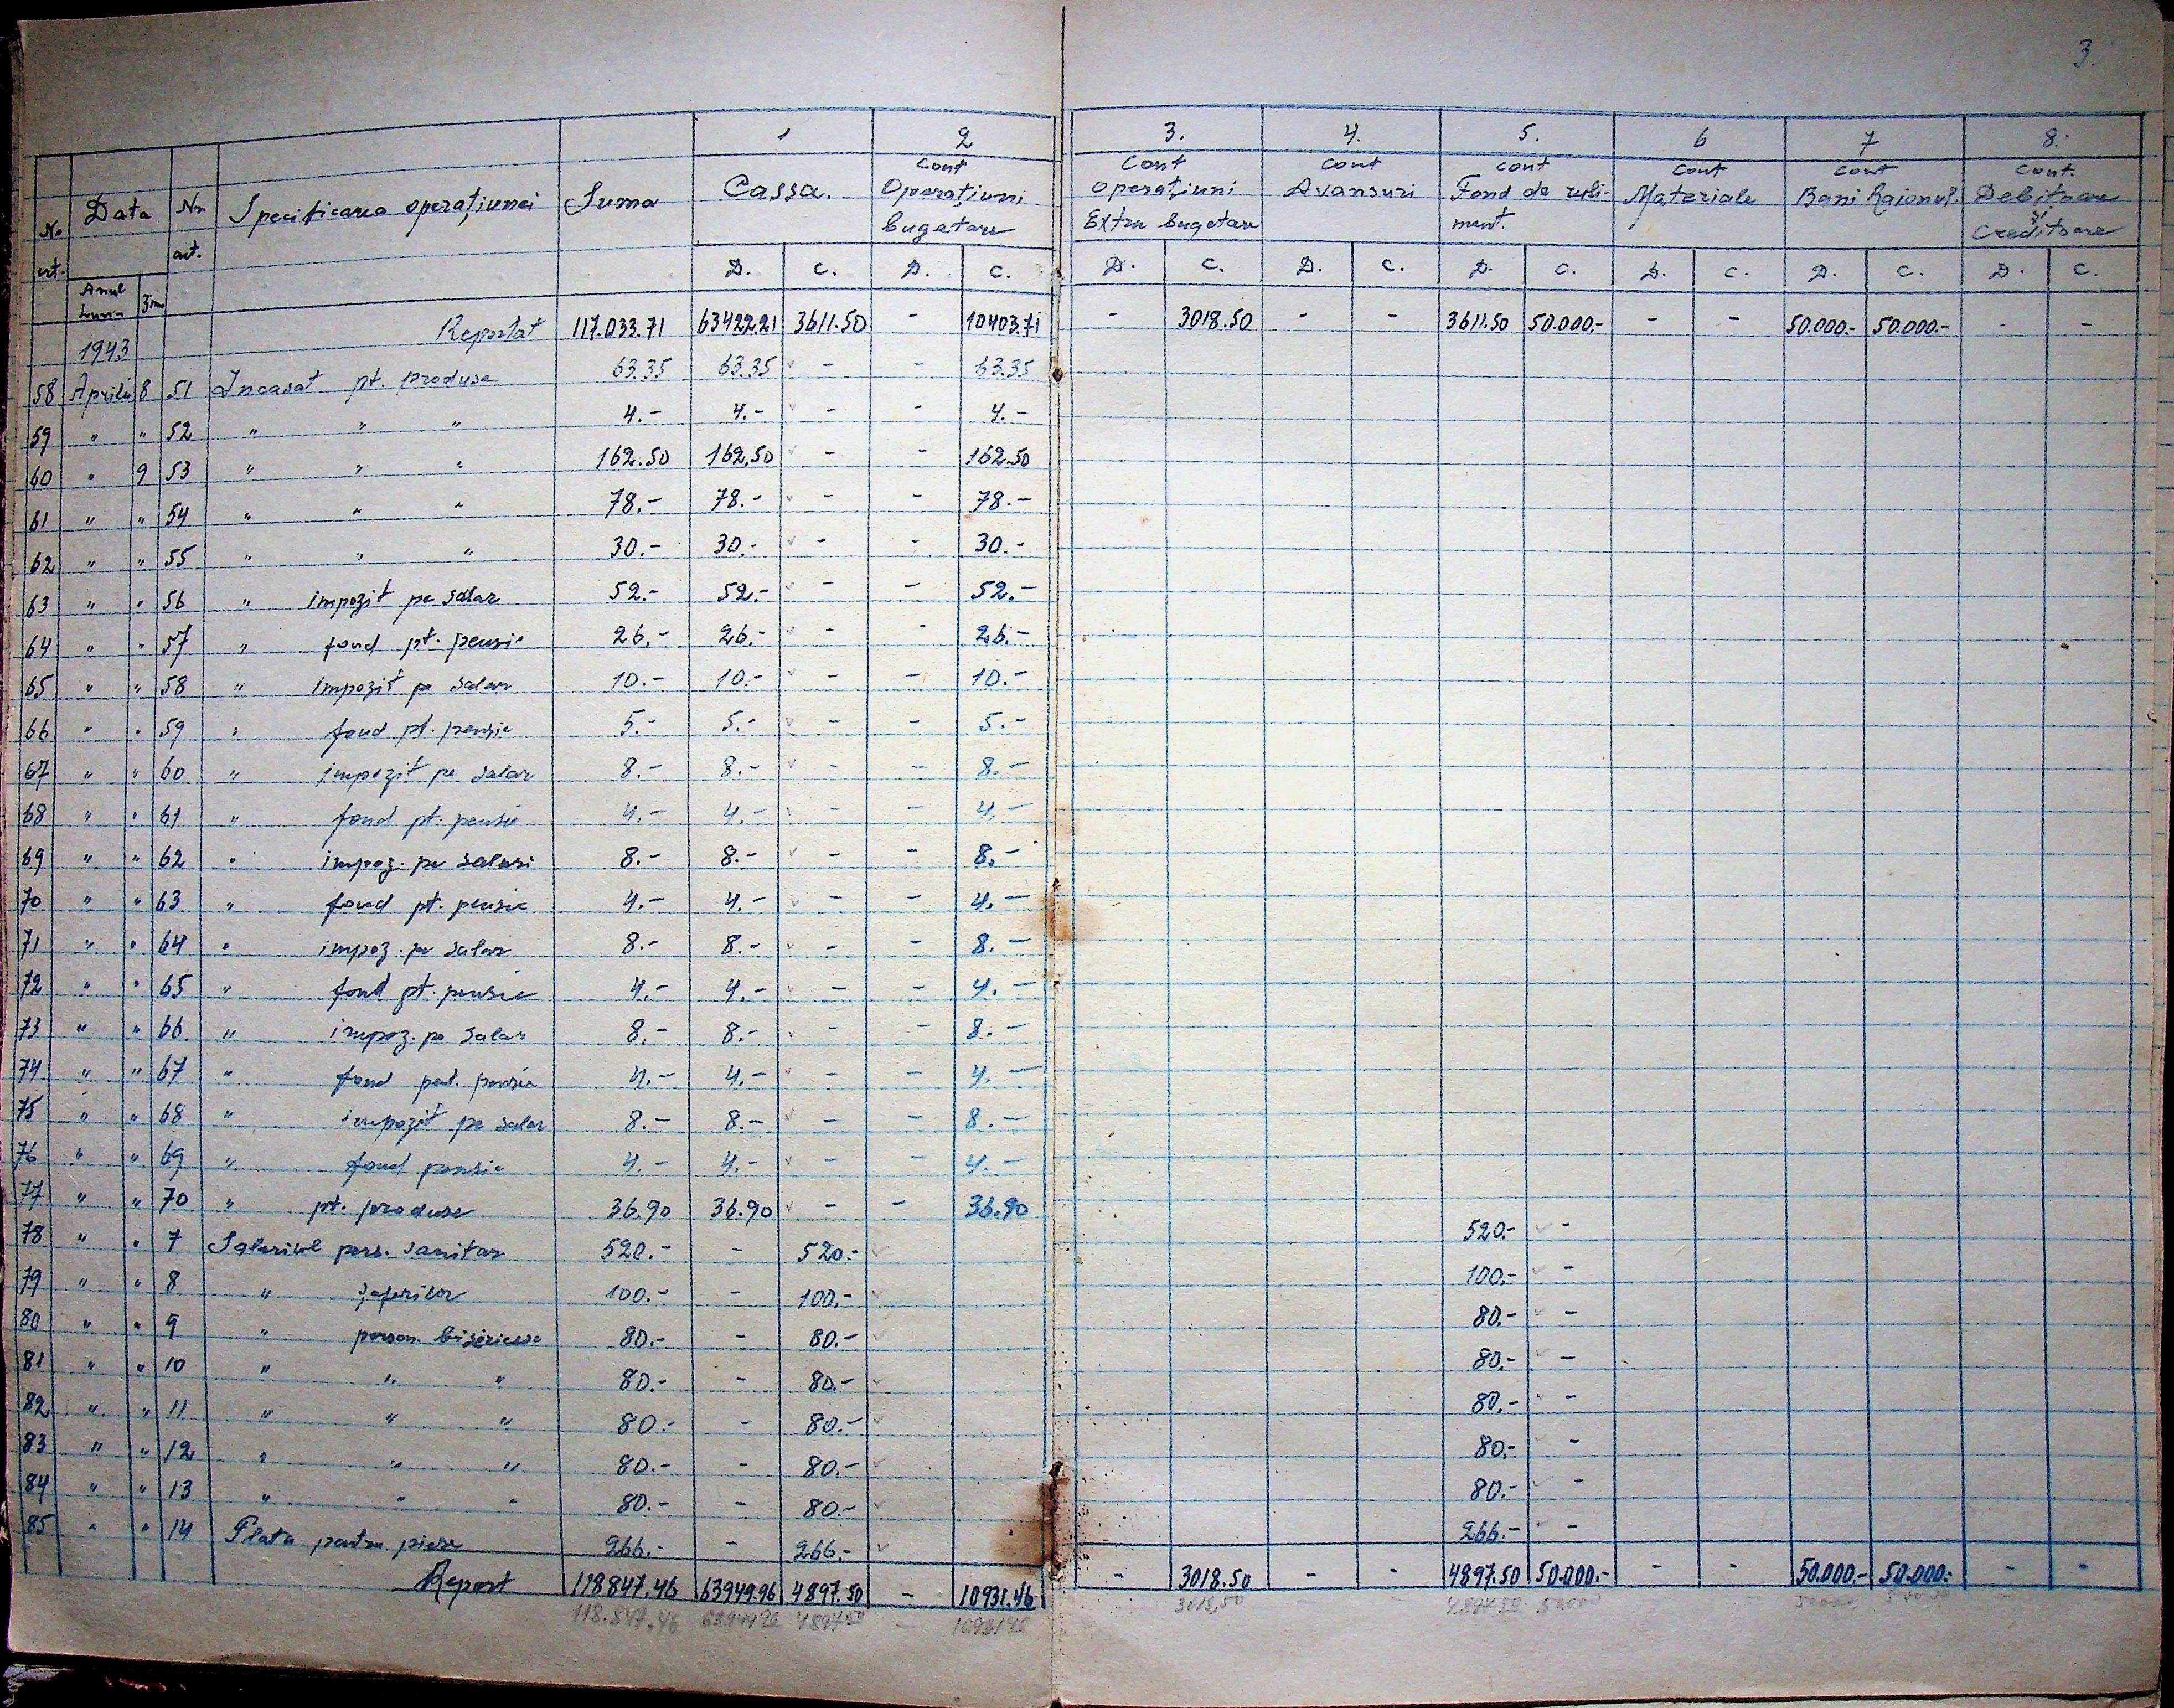 3.
1 2 3. 4. 5. 6 7 8.
No crt. Data Nr. act. Specificarea operațiunei Suma Cassa. Cont Operațiuni bugetare Cont operațiuni Extra bugetare Cont Avansuri Cont Fond de rulment. Cont Materiale Cont Bani Raionul. Cont. Debitoare și Creditoare
Anul Luna Ziua D. C. D. C. D. C. D. C. D. C. D. C. D. C. D. C.
Reportat 117.033.71 63422.21 3611.50 - 10403.71 - 3018.50 - - 3611.50 50.000.- - - 50.000.- 50.000.- - -
1943
58 Aprilie 8 51 Incasat pt. produse 63.35 63.35 - - 63.35
59 " " 52 " " " 4.- 4.- - - 4.-
60 " 9 53 " " " 162.50 162,50 - - 162.50
61 " " 54 " " " 78.- 78.- - - 78.-
62 " " 55 " " " 30.- 30.- - - 30.-
63 " " 56 " impozit pe salar 52.- 52.- - - 52.-
64 " " 57 " fond pt. pensie 26.- 26.- - - 26.-
65 " " 58 " impozit pe salar 10.- 10.- - - 10.-
66 " " 59 " fond pt. pensie 5.- 5.- - - 5.-
67 " " 60 " impozit pe salar 8.- 8.- - - 8.-
68 " " 61 " fond pt. pensie 4.- 4.- - - 4.-
69 " " 62 " impoz. pe salari 8.- 8.- - - 8.-
70 " " 63 " fond pt. pensie 4.- 4.- - - 4.-
71 " " 64 " impoz. pe salar 8.- 8.- - - 8.-
72 " " 65 " fond pt. pensie 4.- 4.- - - 4.-
73 " " 66 " impoz. pe salar 8.- 8.- - - 8.-
74 " " 67 " fond pent. pensie 4.- 4.- - - 4.-
75 " " 68 " impozit pe salar 8.- 8.- - - 8.-
76 " " 69 " fond pensie 4.- 4.- - - 4.-
77 " " 70 " pt. produse 36.90 36.90 - - 36.90
78 " " 7 Salariul pers. sanitar 520.- - 520.- 520.- -
79 " " 8 " șoferilor 100.- - 100.- 100.- -
80 " " 9 " person. bisericesc 80.- - 80.- 80.- -
81 " " 10 " " " 80.- - 80.- 80.- -
82 " " 11 " " " 80.- - 80.- 80.- -
83 " " 12 " " " 80.- - 80.- 80.- -
84 " " 13 " " " 80.- - 80.- 80.- -
85 " " 14 Plata pentru piese 266.- - 266.- 266.- -
Report 118847.46 63949.96 4897.50 - 10931.46 - 3018.50 - - 4897.50 50.000.- - - 50.000.- 50.000.- - -
118.847.46 63949.96 4897.50 - 10931.46 3018,50 4897.50 50000